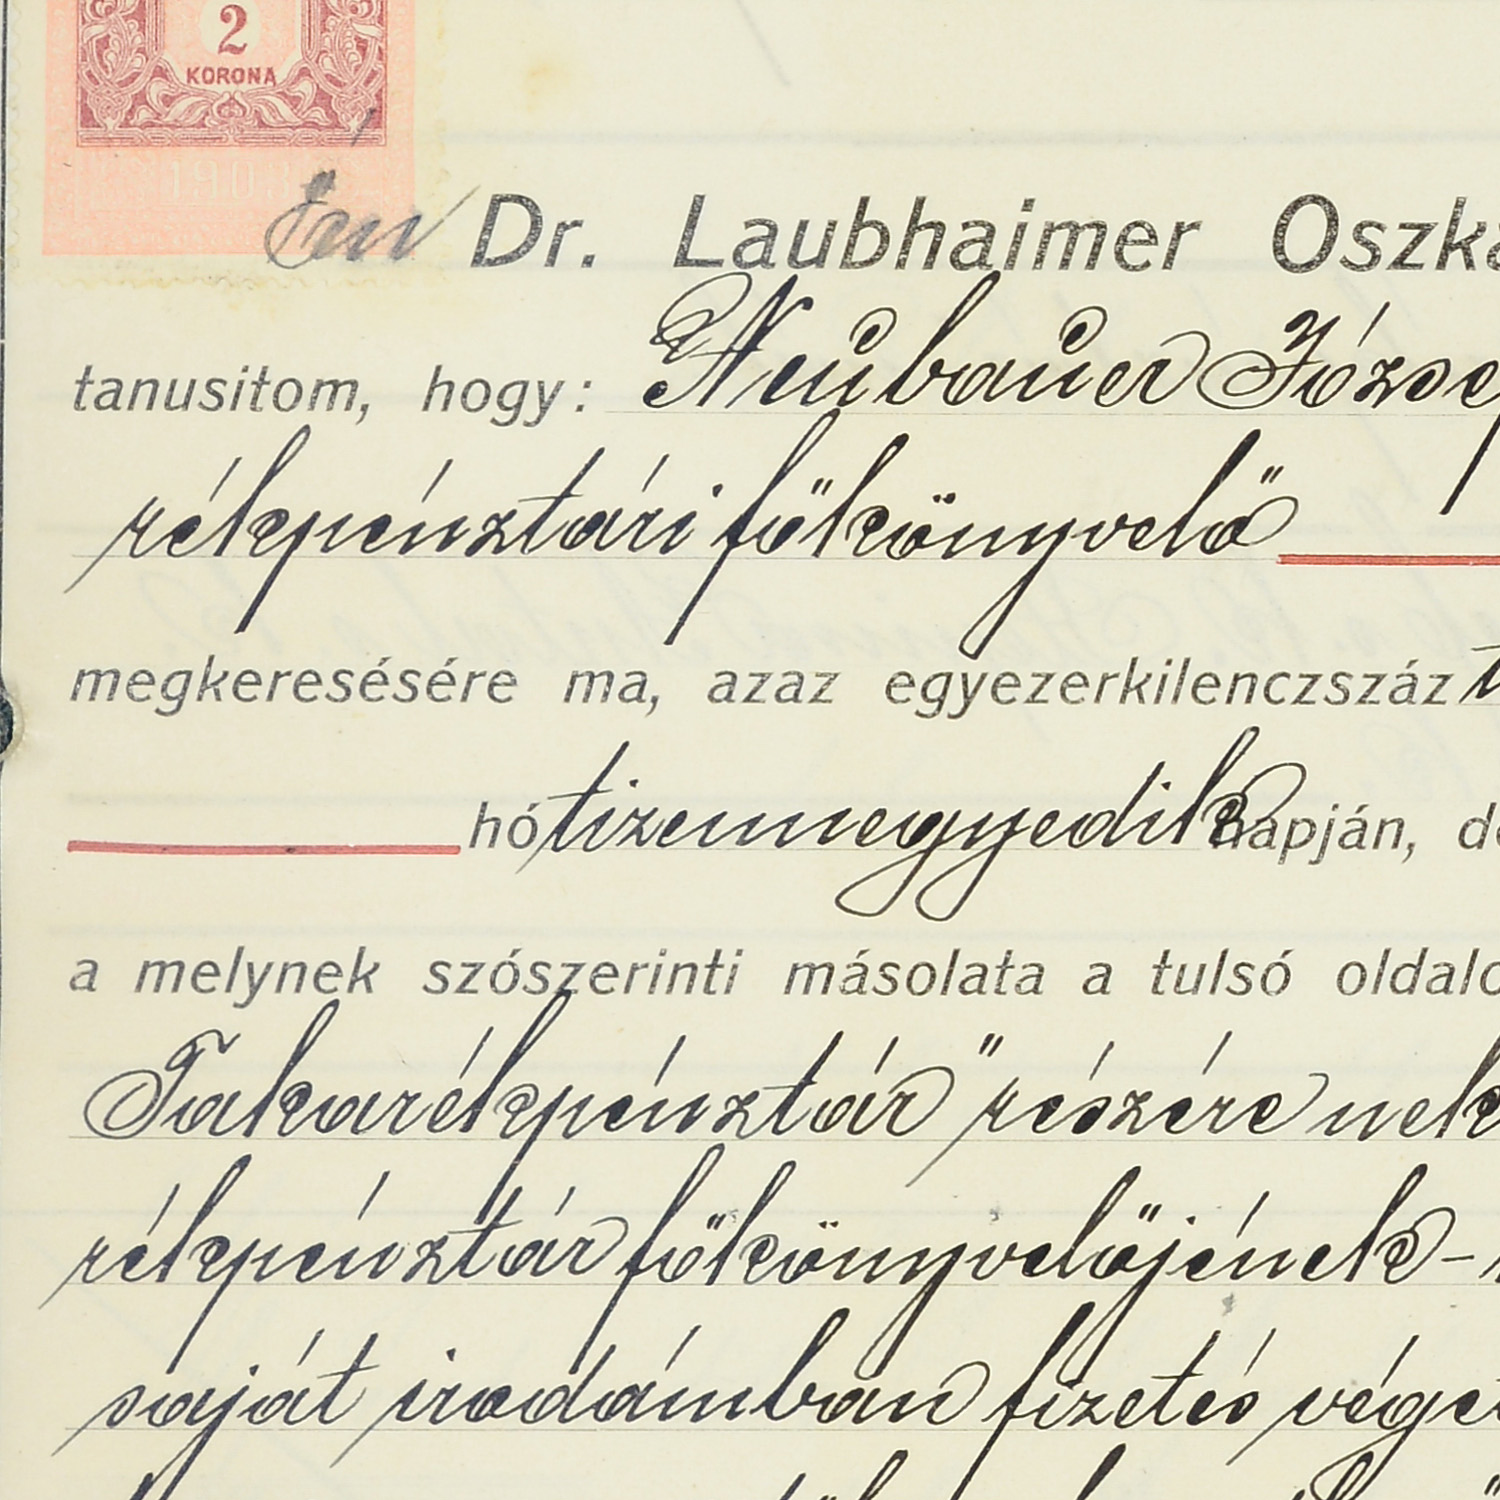 2
KORONA
1903
Én Dr. Laubhaimer Oszká
tanusitom, hogy: Neubauer József
rékpénztári főkönyvelő
megkeresésére ma, azaz egyezerkilenczszáz
hó tizennegyedik napján, de
a melynek szószerinti másolata a tulsó oldalo
Takarékpénztár" részére nek
rékpénztár főkönyvelőjének -
saját irodámban fizetés véget